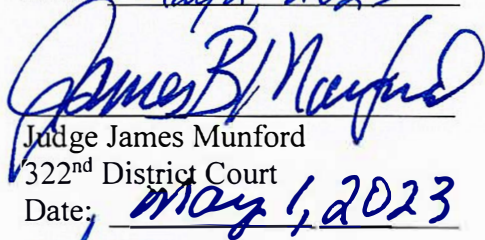 2023
James B Munford
Judge James Munford
322nd District Court
Date: May 1, 2023